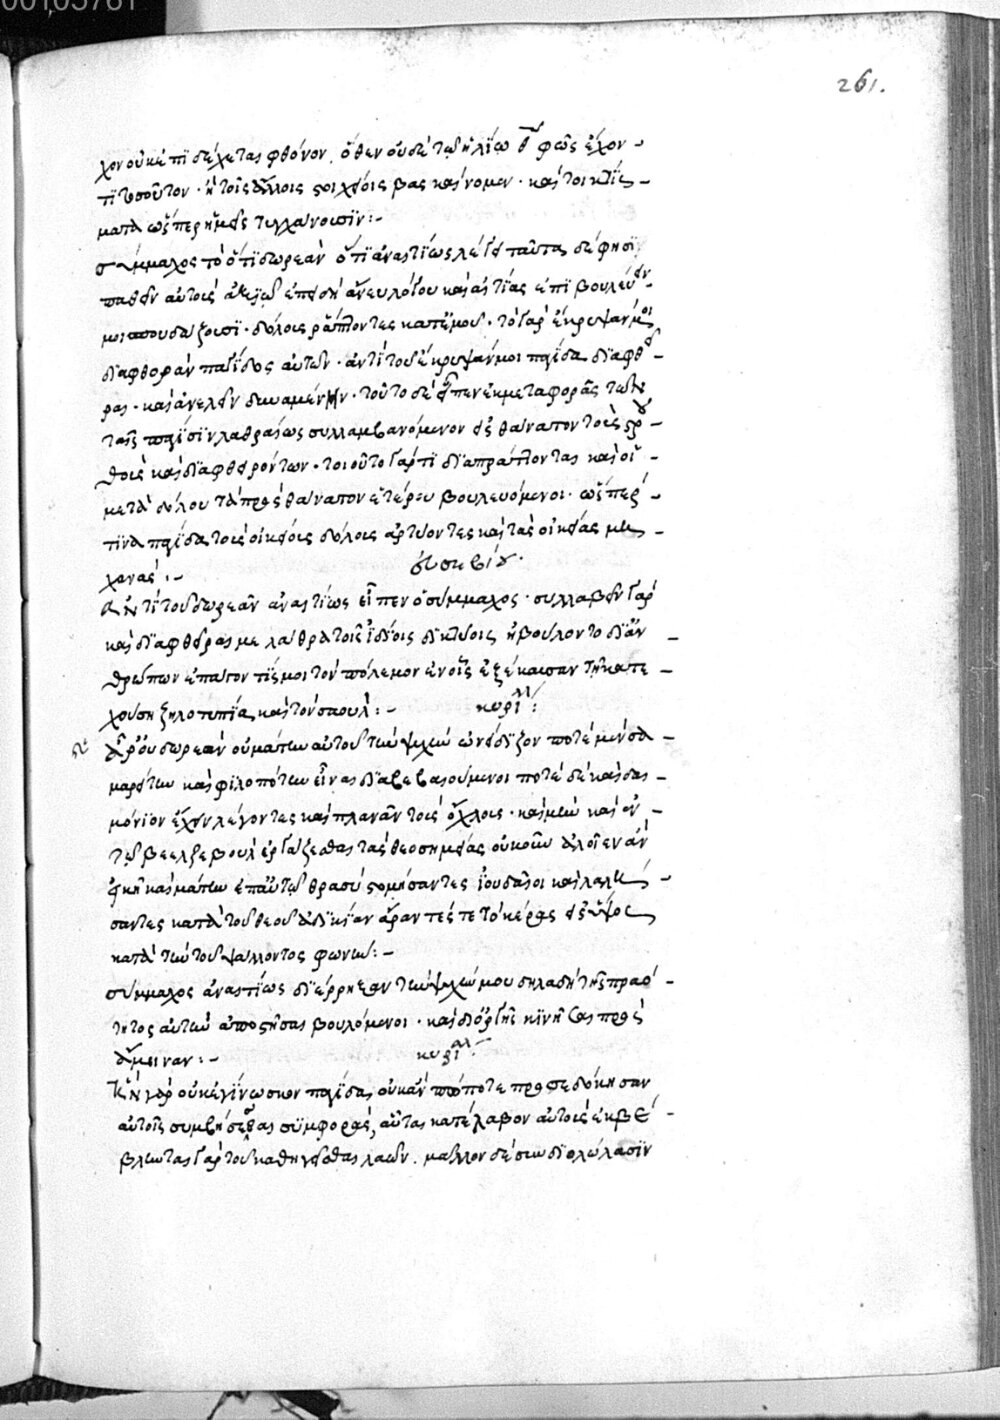 00105761
261.
χον οὐκ ἐπιδέχεται φθόνον. ὅθεν οὐδὲ τῷ ἡλίῳ
τι τοσοῦτον. ἢ τοῖς ἄλλοις στοιχείοις βασκαίνομεν. καίτοι
ματα ὥσπερ ἡμεῖς τυγχάνουσιν:-
σύμμαχος τὸ ὅτι δωρεὰν ὅτι ἀναιτίως λέγει ταῦτα δέ φησι
παθεῖν αὐτοὺς ἐπειδὴ ἄνευ λόγου καὶ αἰτίας ἐπιβουλεύειν
μοι σπουδάζουσι. δόλοις ῥάπτοντες κατ' ἐμοῦ. τὸ γὰρ ἔκρυψάν μοι
διαφθορὰν παγίδος αὐτῶν. ἀντὶ τοῦ ἔκρυψάν μοι παγίδα διαφθο
ρας. καὶ ἀνελεῖν δυναμένην. τοῦτο δὲ εἶπεν ἐκ μεταφορᾶς τῶν
ταῖς παγίσιν λαθραίως συλλαμβανόμενον εἰς θάνατον τοὺς
θους καὶ διαφθειρόντων. τοιοῦτο γάρ τι διαπράττονται καὶ οἱ
μετὰ δόλου τὰ πρὸς θάνατον ἑτέρου βουλευόμενοι. ὥσπερ
τινὰ παγίδα τοὺς οἰκείοις δόλοις ἀρτύοντες καὶ τὰς οἰκείας μη
χανάς:-
εὐσεβίου.
Ἀντὶ τοῦ δωρεὰν ἀναιτίως εἶπεν ὁ σύμμαχος. συλλαβεῖν γὰρ
καὶ διαφθεῖραί με λάθρα τοῖς ἰδίοις δικτύοις ἠβούλοντο δι' ἀν
θρώπων ἐπαγοντές μοι τὸν πόλεμον ἐν οἷς ἐξέκαυσαν τῇ κατε
χούσῃ ζηλοτυπίᾳ καὶ τὸν σαούλ:- κυρίλ:
δωρεὰν οὐ μάτην αὐτοῦ τὴν ψυχὴν ὠνείδιζον ποτὲ μὲν σα
μαρείτην καὶ φιλοπότην εἶναι διαβεβαιούμενοι ποτὲ δὲ καὶ δαι
μόνιον ἔχειν λέγοντες καὶ πλανᾶν τοὺς ὄχλους. καὶ μὴν καὶ ἐν
τῷ βεελζεβοὺλ ἐργάζεσθαι τὰς θεοσημείας οὐκοῦν
εἰκῆ καὶ μάτην ἐπ' αὐτῷ θρασυστομήσαντες ἰουδαῖοι καὶ λαλή
σαντες κατὰ τοῦ θεοῦ ἀδικίαν ἄραντές τε τὸ κέρας εἰς ὕψος
κατὰ τὴν τοῦ ψάλλοντος φωνήν:-
σύμμαχος ἀναιτίως διέρρηξαν τὴν ψυχήν μου δηλαδὴ τῆς πραό
τητος αὐτὴν ἀποστῆσαι βουλόμενοι. καὶ δι' ὀργῆς κινῆσαι πρὸς
ἄμυναν:- κυρίλ:
Ἣν γὰρ οὐκ ἐγίνωσκον παγίδα, οὐκ ἂν πώποτε προσεδόκησαν
αὐτοῖς συμβήσεσθαι συμφοράς, αὗται κατέλαβον αὐτοὺς ἐκβέ
βληνται γὰρ τοῦ καθηγεῖσθαι λαῶν. μᾶλλον δὲ διολώλασιν